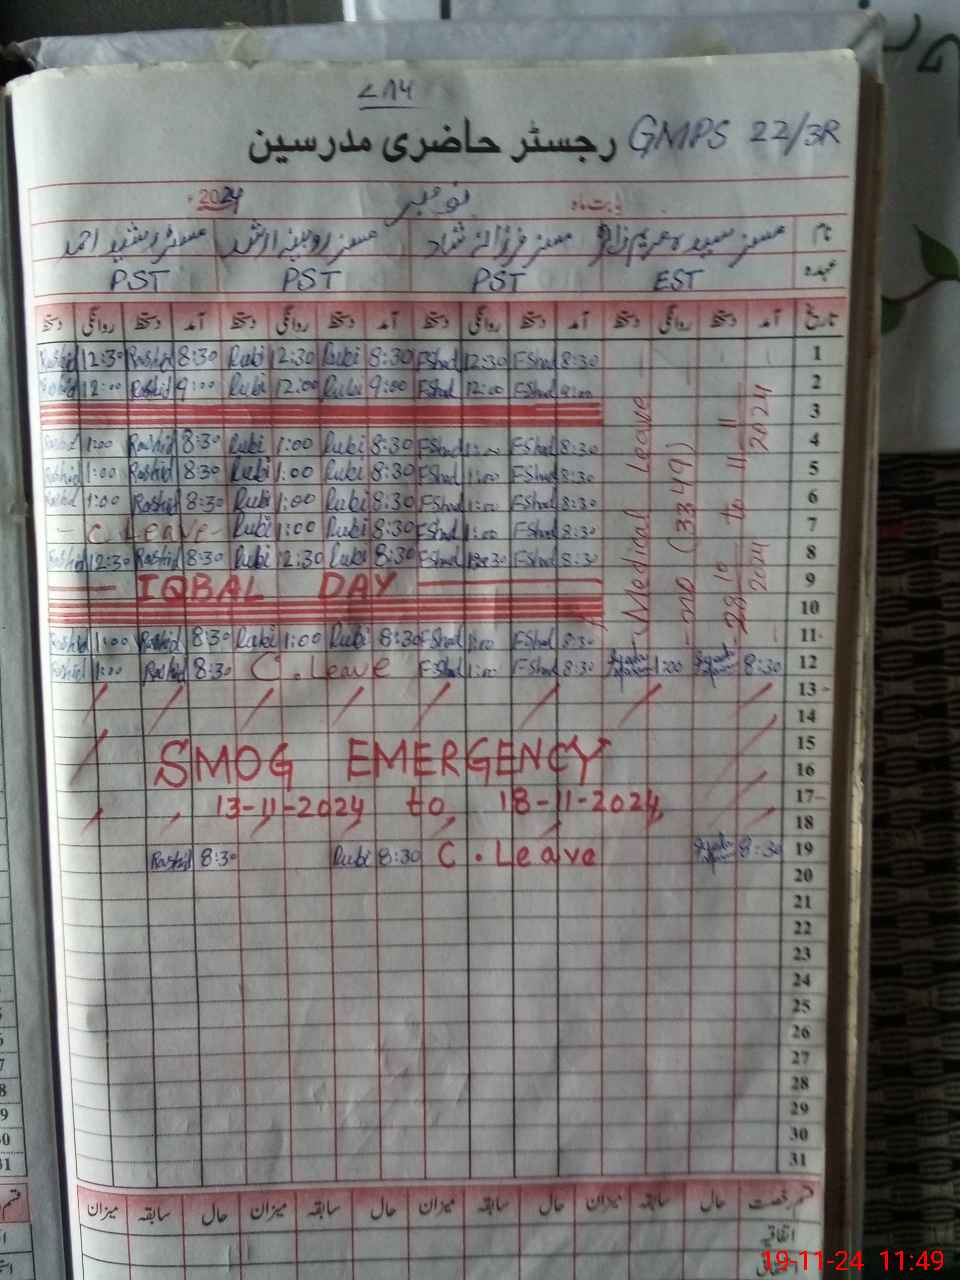 رجسٹر حاضری مدرسین GMPS 22/3R
بابت ماہ نومبر 2024
نام مسز سیدہ مریم مسز مسز روبینہ ارشد مسٹر رشید احمد
عہدہ EST PST PST PST
تاریخ آمد دستخط روانگی دستخط آمد دستخط روانگی دستخط آمد دستخط روانگی دستخط آمد دستخط روانگی دستخط
Rashid 12:30 Rashid 8:30 Rubi 12:30 Rubi 8:30 FShad 12:30 FShad 8:30 1
Rashid 12:00 Rashid 9:00 Rubi 12:00 Rubi 9:00 FShad 12:00 FShad 9:00 2
3
Rashid 1:00 Rashid 8:30 Rubi 1:00 Rubi 8:30 FShad 1:00 FShad 8:30 4
Rashid 1:00 Rashid 8:30 Rubi 1:00 Rubi 8:30 FShad 1:00 FShad 8:30 5
Rashid 1:00 Rashid 8:30 Rubi 1:00 Rubi 8:30 FShad 1:00 FShad 8:30 6
- C. Leave - Rubi 1:00 Rubi 8:30 FShad 1:00 FShad 8:30 7
Rashid 12:30 Rashid 8:30 Rubi 12:30 Rubi 8:30 FShad 12:30 FShad 8:30 8
IQBAL DAY 9
10
Medical Leave
(3349)
28-10-2024 to 11-11-2024
Rashid 1:00 Rashid 8:30 Rubi 1:00 Rubi 8:30 FShad 1:00 FShad 8:30 11
Rashid 1:00 Rashid 8:30 C. Leave FShad 1:00 FShad 8:30 1:00 8:30 12
13
14
SMOG EMERGENCY 15
16
13-11-2024 to 18-11-2024 17
18
Rashid 8:30 Rubi 8:30 C. Leave 8:30 19
20
21
22
23
24
25
26
27
28
29
30
31
قسم رخصت حال سابقہ میزان حال سابقہ میزان حال سابقہ میزان حال سابقہ میزان
اتفاقیہ
19-11-24 11:49